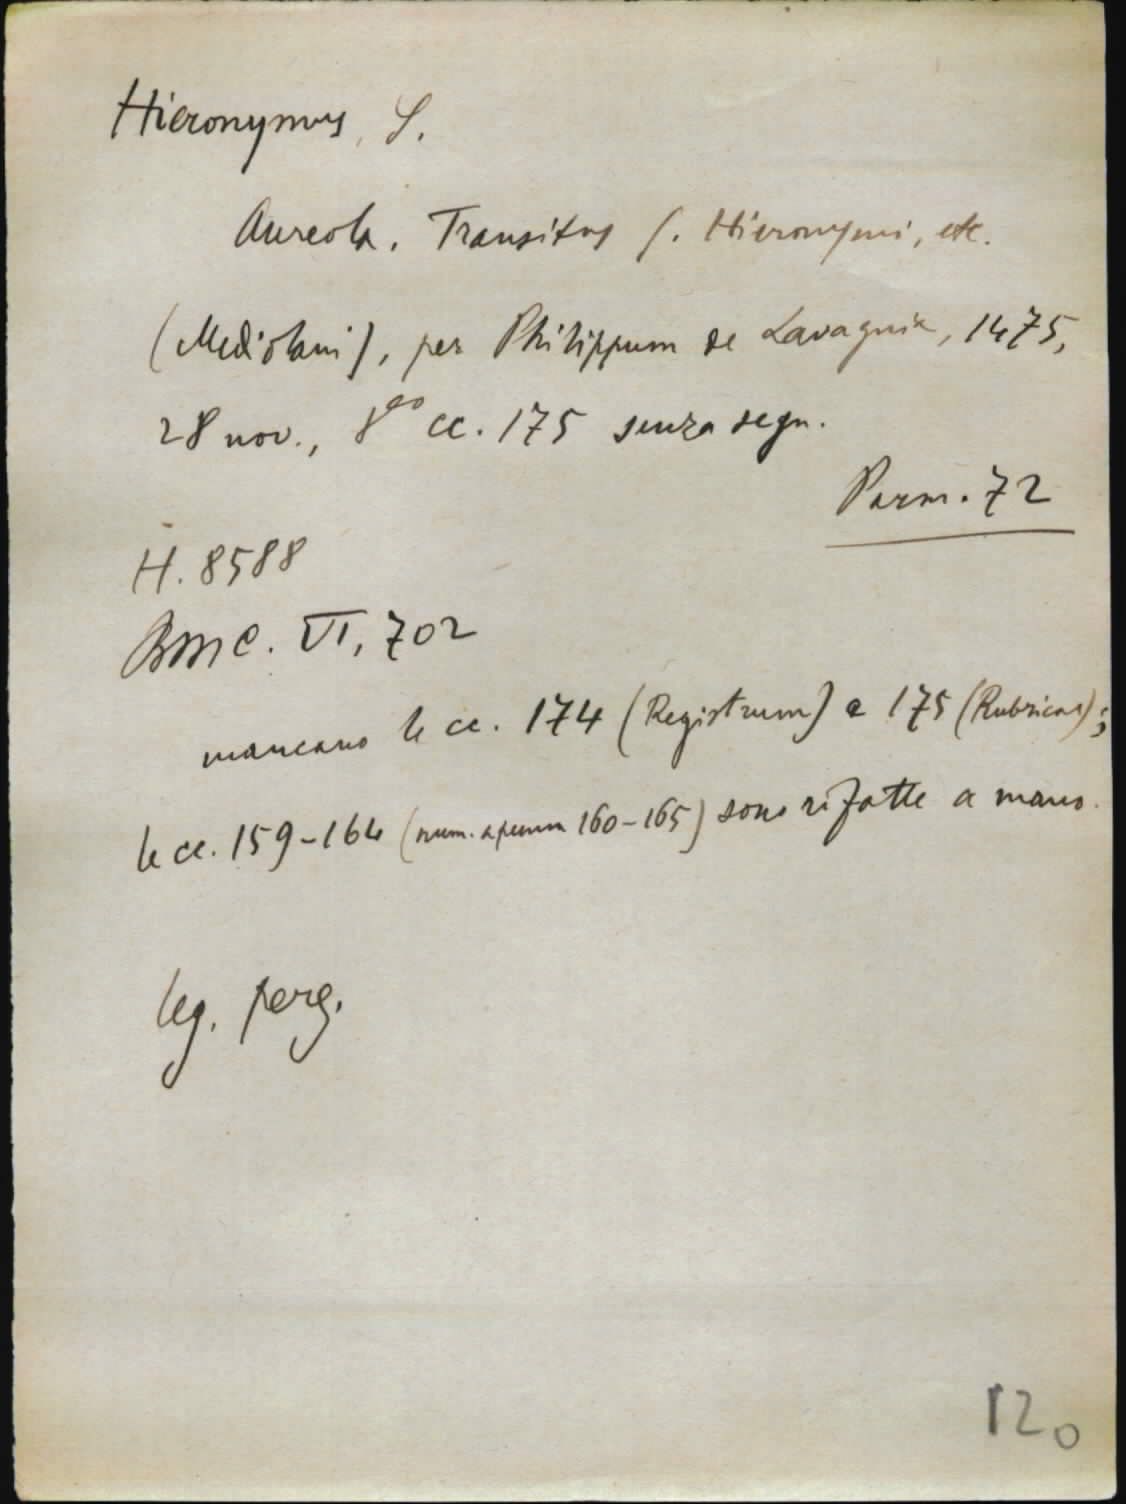 Hieronymus, S.
Aureola. Transitus S. Hieronymi, etc.
(Mediolani), per Philippum de Lavagnia, 1475,
28 nov., 8º cc. 175 senza segn.
Parm. 72
H. 8588
BMC. VI, 702
mancano le cc. 174 (Registrum) e 175 (Rubricas);
le cc. 159-164 (num. a penna 160-165) sono rifatte a mano.
leg. perg.
120